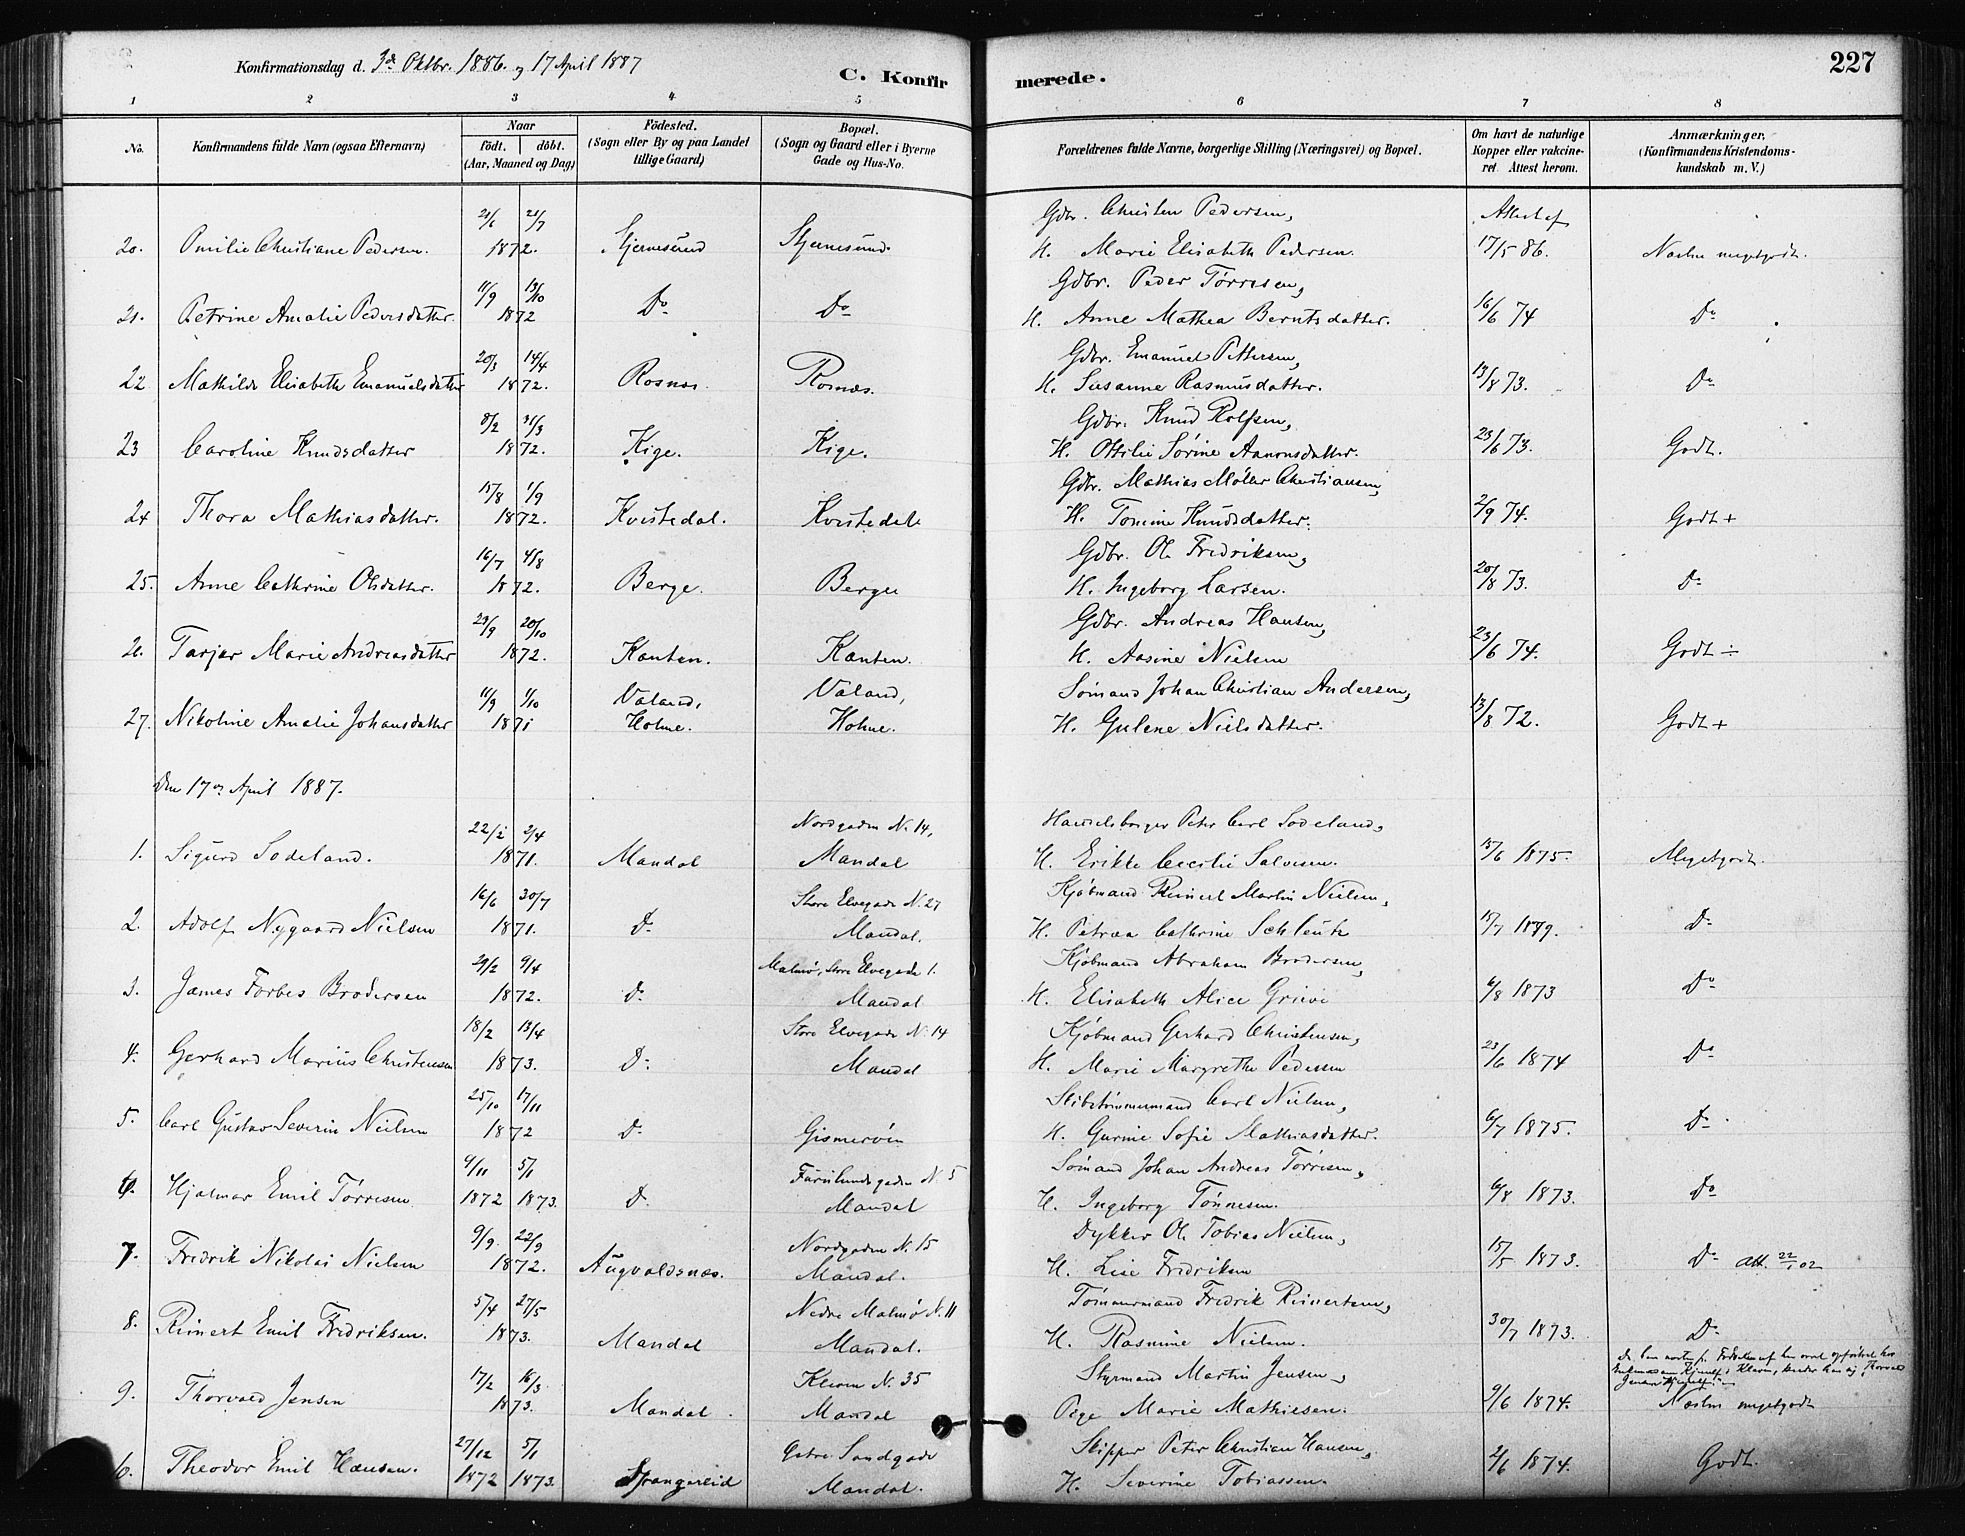 Konfirmationsdag d. 3de Oktbr. 1886. og 17 April 1887
C. Konfirmerede.
227
1 2 3 4 5 6 7 8
No.
Konfirmandens fulde Navn (ogsaa Efternavn)
Naar
födt. döbt.
(Aar, Maaned og Dag)
Födested.
(Sogn eller By og paa Landet
tillige Gaard)
Bopæl.
(Sogn og Gaard eller i Byerne
Gade og Hus-No.
Forældrenes fulde Navne, borgerlige Stilling (Næringsvei) og Bopæl.
Om havt de naturlige
Kopper eller vakcine-
ret. Attest herom.
Anmærkninger.
(Konfirmandens Kristendoms-
kundskab m. V.)
21/6 21/7 Gdbr. Christen Pedersen, Attest af
20. Omilie Christiane Pedersen. 1872. Stjernesund Stjernesund. H. Marie Elisabeth Pedersen. 17/5 86. Næsten megetgodt.
11/9 13/10 Gdbr. Peder Tørresen,
21. Petrine Amalie Pedersdatter. 1872 Do Do H. Anne Mathea Berntsdatter. 16/6 74 Do
20/3 14/4 Gdbr. Emanuel Pettersen,
22 Mathilde Elisabeth Emanuelsdatter 1872. Rosnæs. Rosnæs. H. Susanne Rasmusdatter. 13/8 73. Do
8/2 31/3 Gdbr. Knud Rolfsen,
23 Caroline Knudsdatter 1872. Kige. Kige. H. Ottilie Sørine Aanonsdatter. 23/6 73. Godt.
15/8 1/9 Gdbr. Mathias Møller Christiansen,
24 Thora Mathiasdatter. 1872. Kvistedal. Kvistedal H. Tomine Knudsdatter. 2/9 74. Godt +
16/7 4/8 Gdbr. Ole Fredriksen,
25. Anne Cathrine Olsdatter. 1872. Berge. Berge H. Ingeborg Larsen. 20/8 73. Do
23/9 20/10 Gdbr. Andreas Hansen,
26. Tarjer Marie Andreasdatter 1872. Kanten. Kanten. H. Aasine Nielsen 23/6 74. Godt ÷
11/9 1/10 Valand, Valand, Sömand Johan Christian Andersen,
27. Nikoline Amalie Johansdatter 1871 Holme. Holme. H. Gulene Nielsdatter. 13/8 72. Godt +
Den 17de April 1887.
22/2 2/4 Nordgaden N. 14, Handelsborger Peter Carl Sodeland,
1. Sigurd Sodeland. 1871. Mandal Mandal H. Erikke Cecilie Salvesen. 15/6 1875. Megetgodt.
16/6 30/7 Store Elvegade N. 27 Kjøbmand Reinert Martin Nielsen,
2. Adolf Nygaard Nielsen 1871. Do Mandal. H. Petrea Cathrine Schleutz 15/7 1879. Do
29/2 9/4 Malmø, Store Elvegade 1. Kjøbmand Abraham Brodersen,
3. James Forbes Brodersen 1872. Do Mandal H. Elisabeth Alice Grieve 6/8 1873 Do
18/2 13/4 Store Elvegade N. 14 Kjøbmand Gerhard Christensen,
4. Gerhard Marius Christensen 1873. Do Mandal H. Marie Margrethe Pedersen 23/6 1874 Do
25/10 17/11 Skibstømmermand Carl Nielsen,
5. Carl Gustav Severin Nielsen 1872 Do Gismerøen H. Gurine Sofie Mathiasdatter. 6/7 1875. Do
9/11 5/1 Furulundsgaden N. 5 Sömand Johan Andreas Tørresen,
6. Hjalmar Emil Tørresen 1872 1873. Do Mandal H. Ingeborg Tønnesen. 6/8 1873. Do
9/9. 22/9 Nordgaden N. 15 Dykker Ole Tobias Nielsen,
7. Fredrik Nikolai Nielsen 1872. Augvaldsnæs. Mandal. H. Lise Fredriksen 15/5 1873. Do Att. 22/1 02
5/4 27/5 Nedre Malmø N. 11 Tømmermand Fredrik Reinertsen,
8. Reinert Emil Fredriksen. 1873. Mandal Mandal. H. Rasmine Nielsen. 30/7 1873. Do
17/2 16/3 Kleven N. 35 Styrmand Martin Jensen,
9. Thorvald Jensen 1873. Mandal. Mandal Pige Marie Mathiesen. 9/6 1874. Næsten megetgodt
27/12 5/1 Østre Sandgade Skipper Peter Christian Hansen,
10. Theodor Emil Hansen. 1872 1873. Spangereid Mandal. H. Severine Tobiassen. 2/6 1874. Godt.